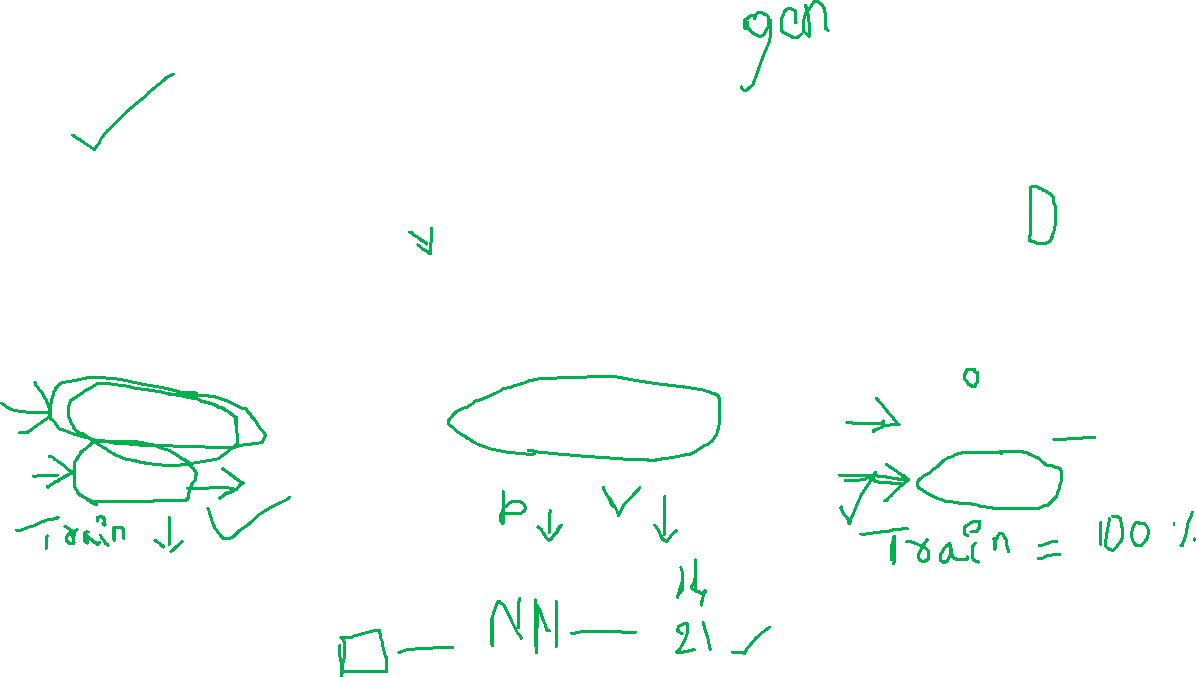 gen
D
Train ↓ ✓
b ↓ ✓ ↓
Train = 100 %
14
NN — 21 ✓